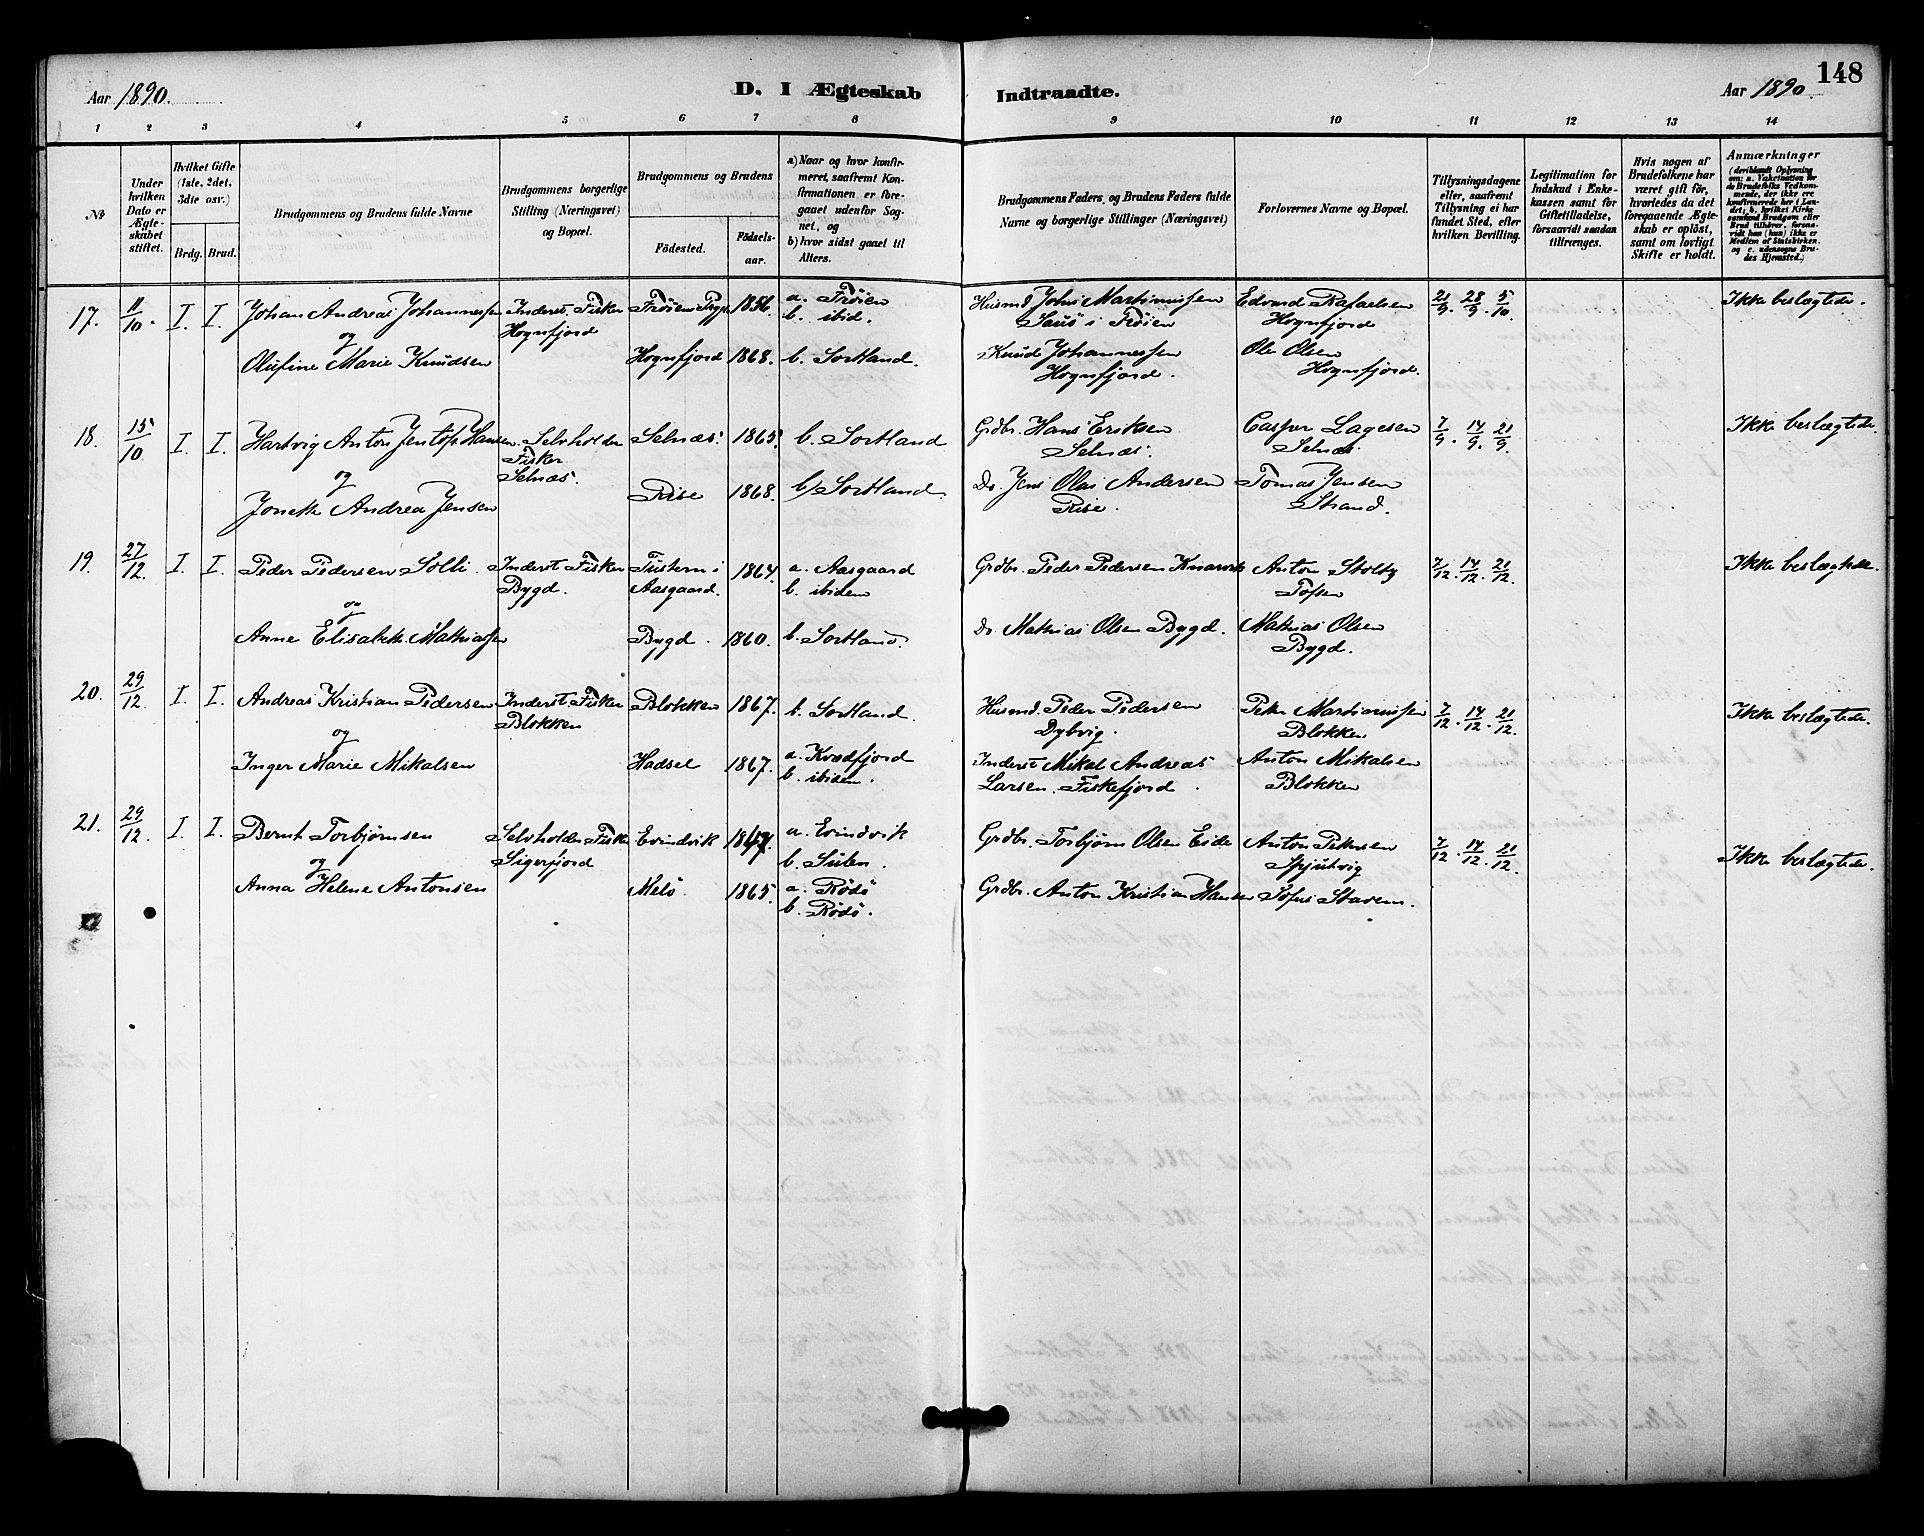 148
Aar 1890.
D. I Ægteskab Indtraadte.
Aar 1890.
1 2 3 4 5 6 7 8 9 10 11 12 13 14
№
Under hvilken Dato er Ægteskabet stiftet.
Hvilket Gifte (1ste, 2det, 3die osv.)
Brdg. Brud.
Brudgommens og Brudens fulde Navne
Brudgommens borgerlige Stilling (Næringsvei) og Bopæl.
Brudgommens og Brudens
Födested.
Födsels-aar.
a) Naar og hvor konfirmeret, saafremt Konfirmationen er foregaaet udenfor Sognet, og
b) hvor sidst gaaet til Alters.
Brudgommens Faders, og Brudens Faders fulde Navne og borgerlige Stillinger (Næringsvei)
Forlovernes Navne og Bopæl.
Tillysningsdagene eller, saafremt Tillysning ei har fundet Sted, efter hvilken Bevilling.
Legitimation for Indskud i Enkekassen samt for Giftetilladelse, forsaavidt saadan tiltrænges.
Hvis nogen af Brudefolkene har været gift för, hvorledes da det foregaaende Ægteskab er oplöst, samt om lovligt Skifte er holdt.
Anmærkninger
(deriblandt Oplysning om: a. Vakcination for de Brudefolks Vedkommende, der ikke ere konfirmerede her i Landet; b. hvilket Kirkesamfund Brudgom eller Brud tilhörer, forsaavidt han (hun) ikke er Medlem af Statskirken, og c. udensogns Brudes Hjemsted.)
17. 11/10. I. I. Johan Andreas Johannessen Inderst. Fisker Frøien 1856. a. Frøien Husmd Johs Martinussen Edvard Rafaelsen 21/9. 28/9. 5/10 Ikke beslægtede.
og Hognfjord b. ibid. i Frøien Hognfjord
Olufine Marie Knudsen Hognfjord 1868. b. Sortland. Knud Johannessen Ole Olsen
Hognfjord. Hognfjord.
18. 15/10 I I Hartvig Anton Jentoft Hansen. Selvholden Selnæs. 1865. b. Sortland Grdbr. Hans Eriksen Casper Lagesen 7/9. 14/9. 21/9. Ikke beslægtede.
Fisker Selnæs. Selnæs
og Selnæs.
Jonette Andrea Jensen Rise 1868. b) Sortland. Do. Jens Olai Andersen Tomas Jensen
Rise. Strand.
19. 27/12. I. I. Peder Pedersen Solli Inderst Fisker i 1864. a. Aasgaard Grdbr. Peder Pedersen Anton Stoltz 7/12. 14/12. 21/12. Ikke beslægtede.
og Bygd. Aasgaard. b. ibidem
Anne Elisabeth Mathiassen Bygd. 1860. b. Sortland. Do Mathias Olsen Bygd. Mathias Olsen
Bygd.
20. 29/12. I I. Andreas Kristian Pedersen Inderst Fisker Blokken 1867. b. Sortland. Husmd. Peder Pedersen Peter Martinussen 7/12. 14/12. 21/12. Ikke beslægtede.
og Blokken Dybvig. Blokken
Inger Marie Mikalsen Hadsel 1867. a. Kvædfjord Inderst Mikal Andreas Anton Mikalsen
b. ibidem. Larsen. Fiskefjord. Blokken
21. 29/12. I I. Bernt Torbjørnsen Selvholden Fisker Evindvik a. Evindvik Grdbr. Torbjørn Olsen Eide Anton Pettersen 7/12. 14/12. 21/12. Ikke beslægtede.
og Sigerfjord b. Sulen.
Anna Helene Antonsen Melö. 1865. a. Rödö Grdbr. Anton Kristian Hansen
b. Rödö.